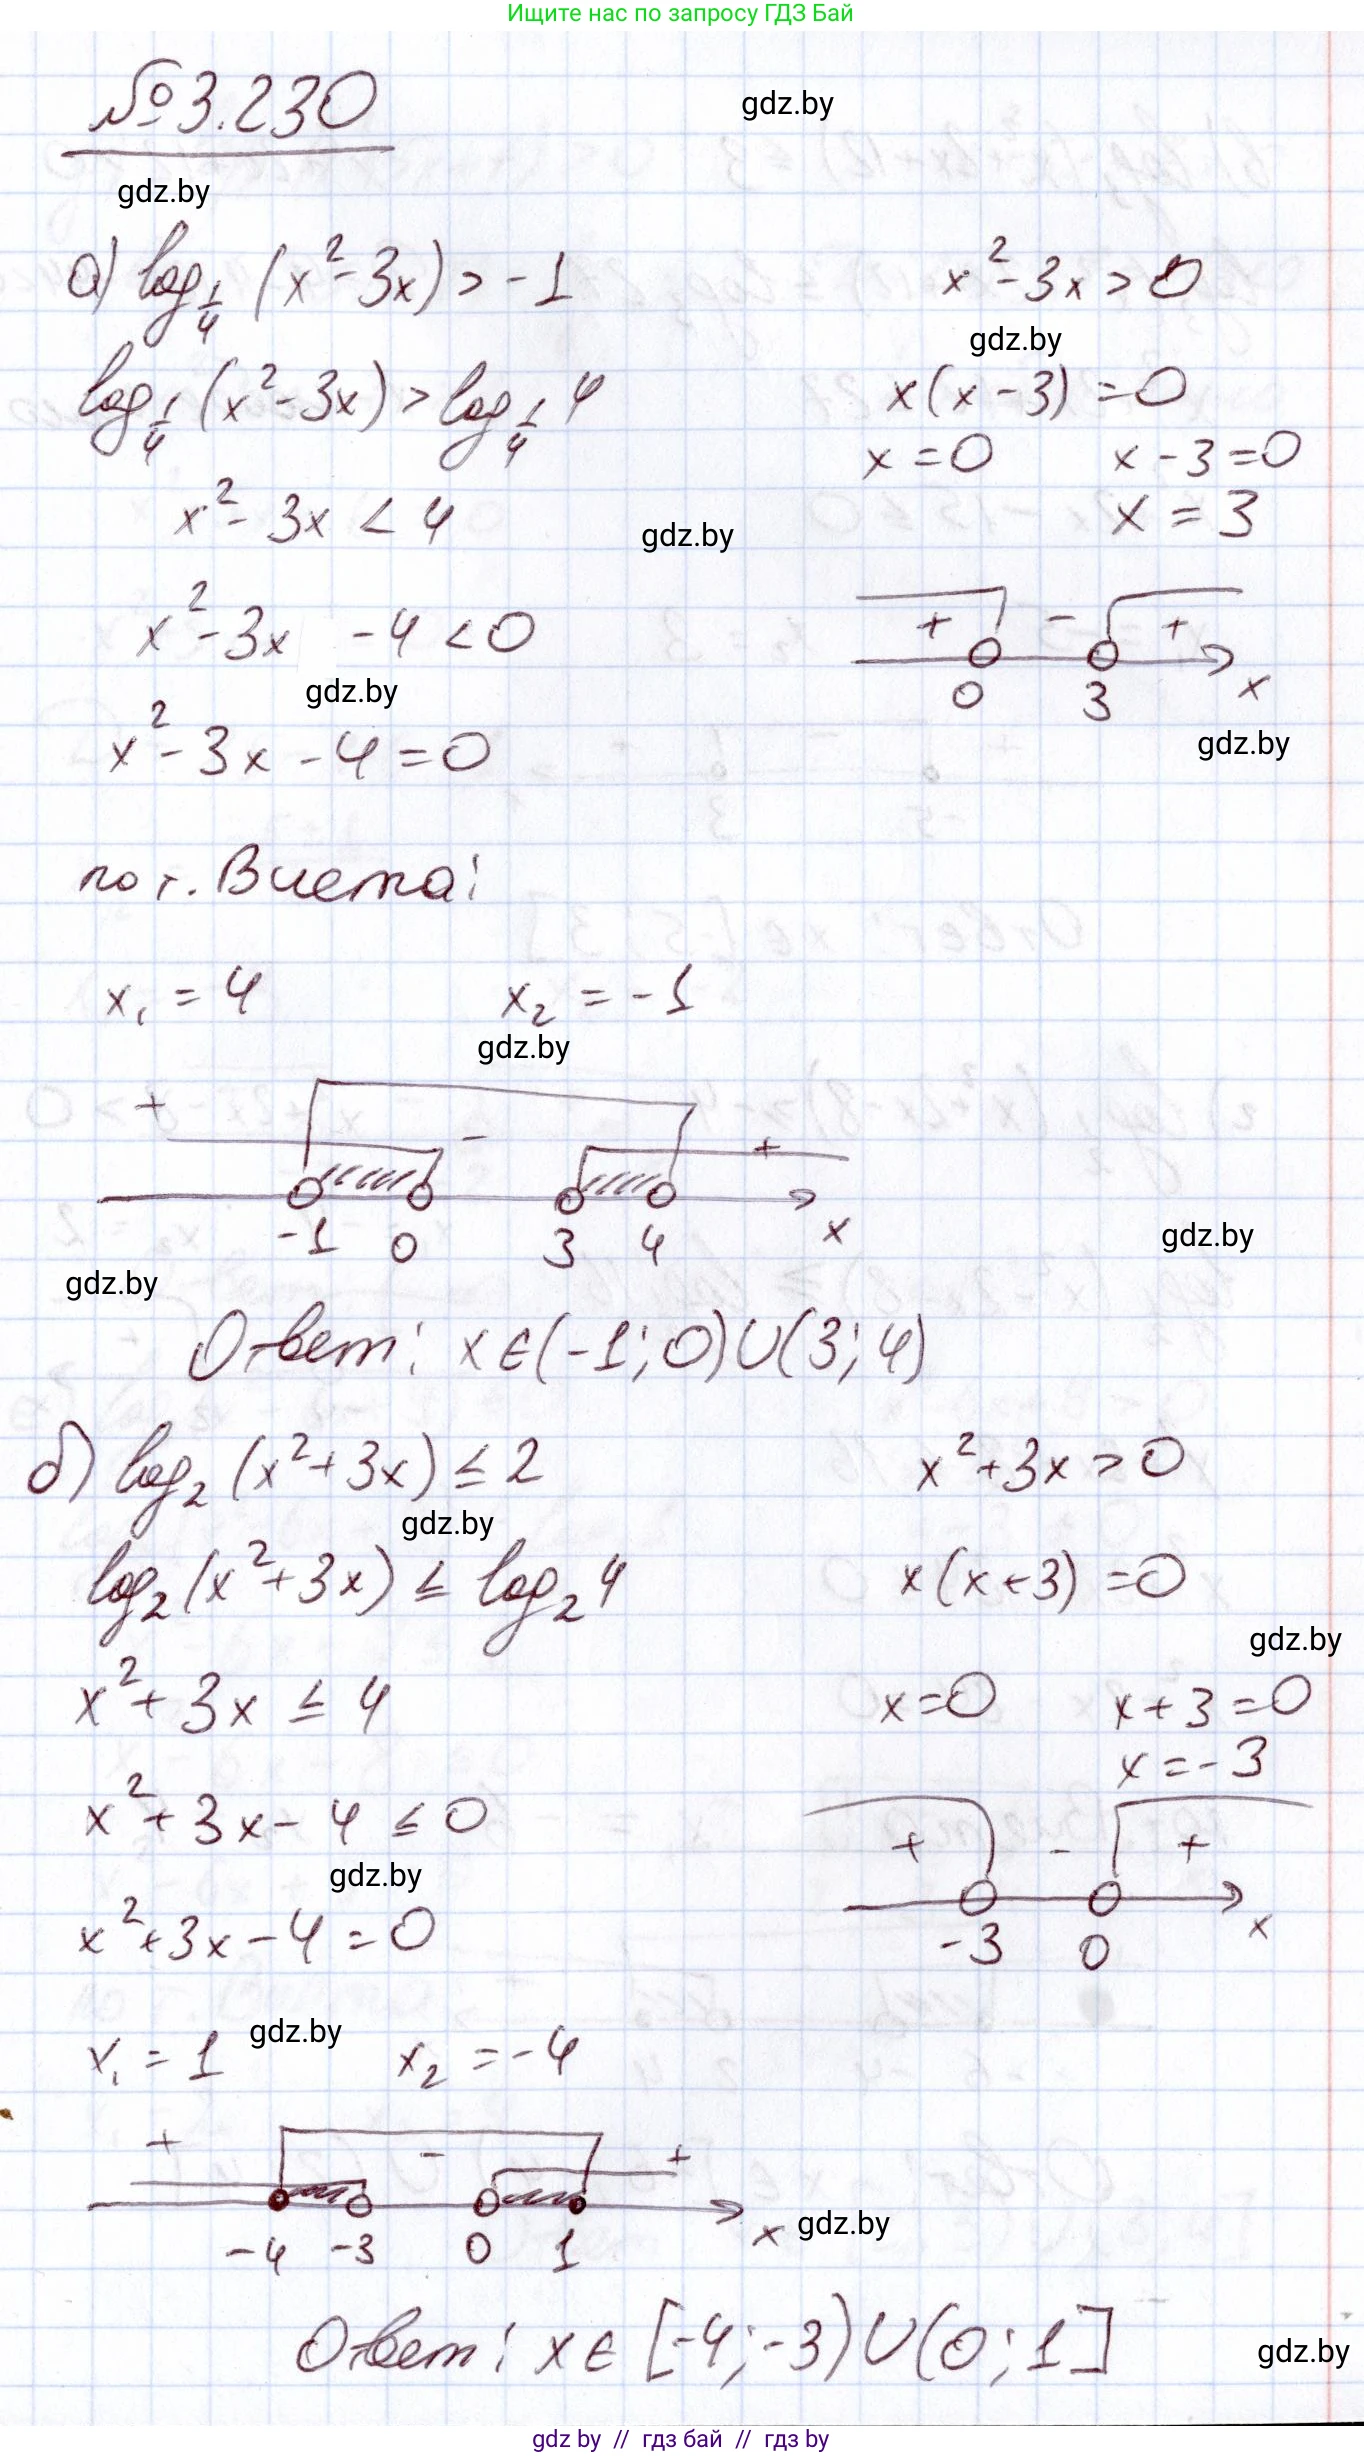 Ищите нас по запросу ГДЗ Бай
№3.230
gdz.by
gdz.by
а) log_{1/4} (x² - 3x) > -1
x² - 3x > 0
gdz.by
log_{1/4} (x² - 3x) > log_{1/4} 4
x(x - 3) = 0
x = 0    x - 3 = 0
x² - 3x < 4
x = 3
gdz.by
x² - 3x - 4 < 0
+ - +
0 3 x
gdz.by
gdz.by
x² - 3x - 4 = 0
по т. Виета:
x₁ = 4    x₂ = -1
gdz.by
+ - +
-1 0 3 4 x
gdz.by
gdz.by
Ответ: x ∈ (-1; 0) ∪ (3; 4)
б) log₂ (x² + 3x) ≤ 2
x² + 3x > 0
gdz.by
log₂ (x² + 3x) ≤ log₂ 4
x(x + 3) = 0
gdz.by
x² + 3x ≤ 4
x = 0    x + 3 = 0
x = -3
x² + 3x - 4 ≤ 0
+ - +
gdz.by
x² + 3x - 4 = 0
-3 0 x
x₁ = 1    x₂ = -4
gdz.by
+ - +
-4 -3 0 1 x
gdz.by
Ответ: x ∈ [-4; -3) ∪ (0; 1]
gdz.by
gdz by // гдз бай // gdz by